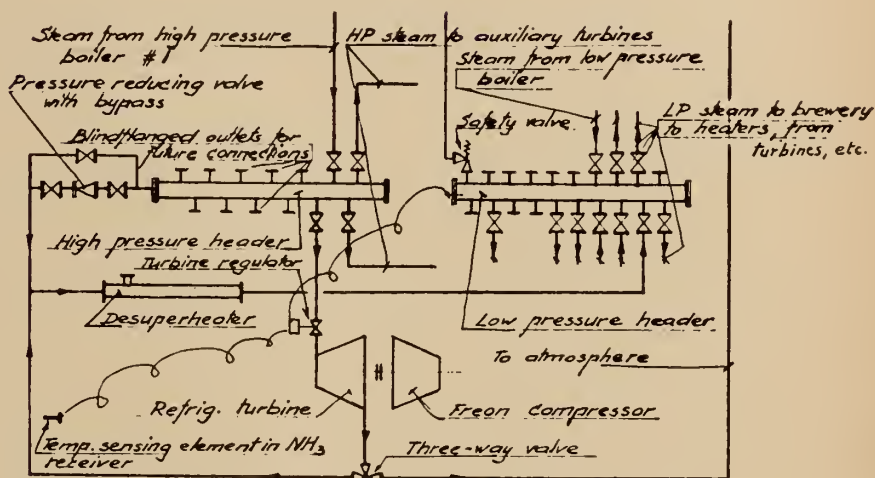 Steam from high pressure
boiler #1
HP steam to auxiliary turbines
Steam from low pressure
boiler
Pressure reducing valve
with bypass
Blindflanged outlets for
future connections
Safety valve
LP steam to brewery
to heaters, from
turbines, etc.
High pressure header
Turbine regulator
Desuperheater
Low pressure header
To atmosphere
Refrig. turbine
Freon compressor
Temp. sensing element in NH3
receiver
Three-way valve